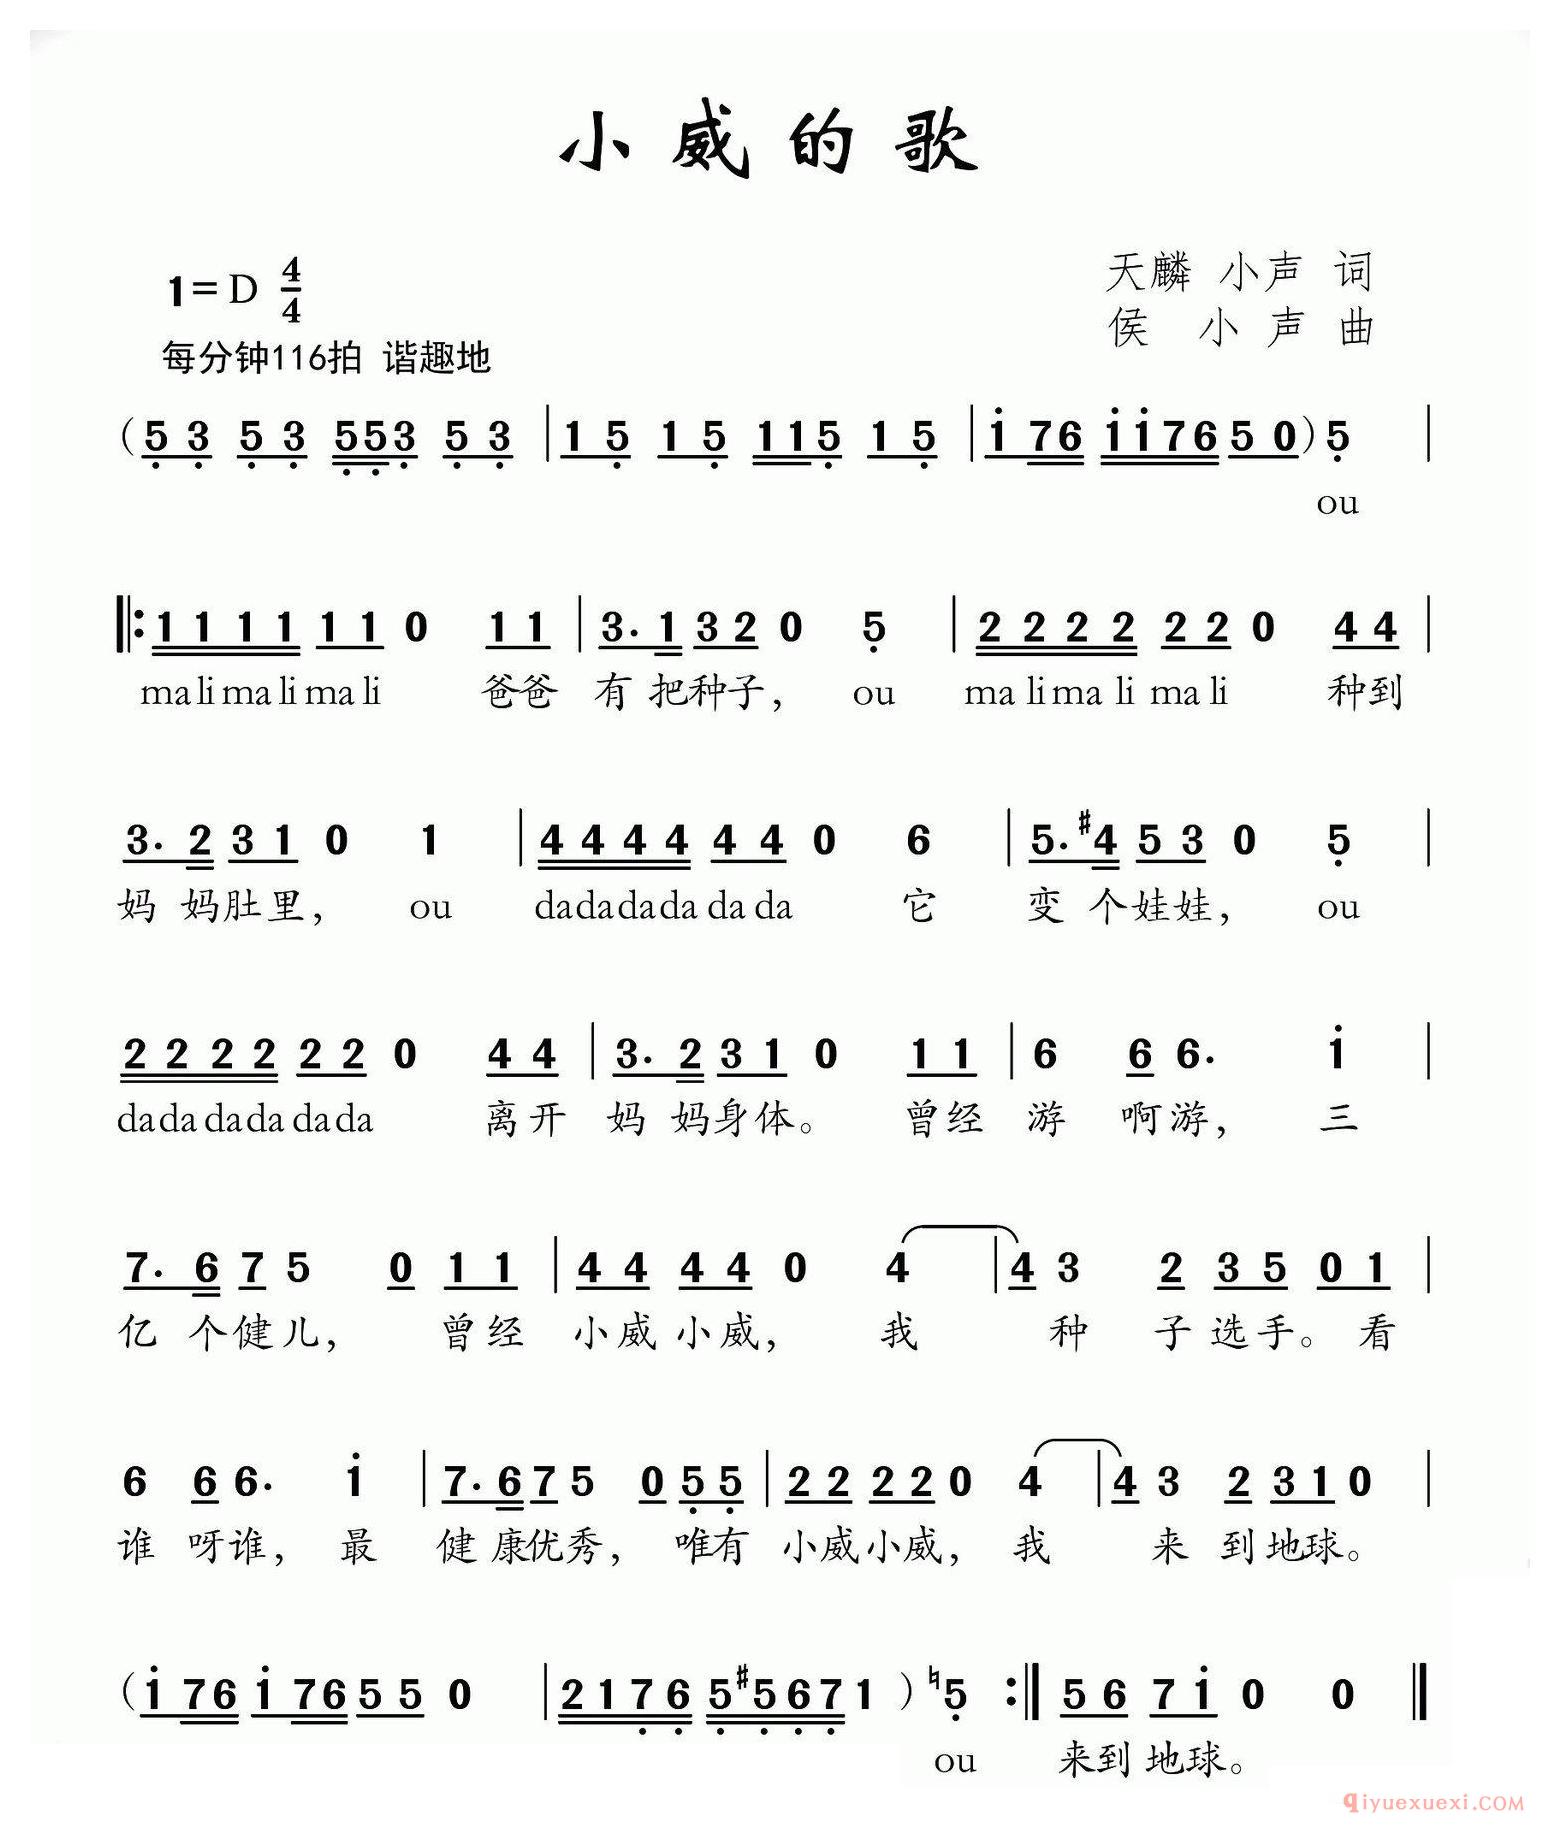 小威的歌
1=D 4/4
天麟 小声 词
侯 小声 曲
每分钟116拍 谐趣地
(5 3 5 3 553 5 3 | 1 5 1 5 115 1 5 | i 76 ii76 5 0) 5 |
ou
‖: 1 1 1 1 1 1 0 1 1 | 3. 1 3 2 0 5 | 2 2 2 2 2 2 0 4 4 |
ma li ma li ma li 爸爸 有 把种子, ou ma li ma li ma li 种到
3. 2 3 1 0 1 | 4 4 4 4 4 4 0 6 | 5. #4 5 3 0 5 |
妈 妈肚里, ou dadadada da da 它 变 个娃娃, ou
2 2 2 2 2 2 0 4 4 | 3. 2 3 1 0 1 1 | 6 6 6. i |
dada dada dada 离开 妈 妈身体。 曾经 游 啊游, 三
7. 6 7 5 0 1 1 | 4 4 4 4 0 4 | 4 3 2 3 5 0 1 |
亿 个健儿, 曾经 小威小威, 我 种 子选手。 看
6 6 6. i | 7. 6 7 5 0 5 5 | 2 2 2 2 0 4 | 4 3 2 3 1 0 |
谁 呀谁, 最 健 康优秀, 唯有 小威小威, 我 来 到地球。
(i 76 i 76 5 5 0 | 2 1 7 6 5 #5 6 7 1 ) ♮5 :‖ 5 6 7 i 0 0 ‖
ou 来到 地球。
qiyuexuexi.COM